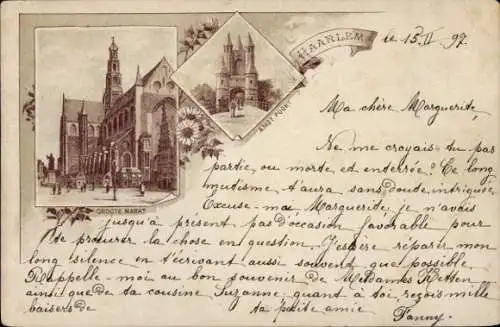 HAARLEM
le 15/II 97
AMST. POORT
GROOTE MARKT
Ma chère Marguerite,
Ne me croyais-tu pas
partie, ou morte et enterrée? Ce long
mutisme t'aura sans doute intriguée
Excuse-moi Marguerite, je n'avais
jusqu'à présent pas d'occasion favorable pour
te procurer la chose en question. J'espère réparer mon
long silence en t'écrivant aussi souvent que possible
Rappelle-moi au bon souvenir de Mesdames
ainsi que de ta cousine Suzanne quant à toi reçois mille
baisers de ta petite amie
Fanny.